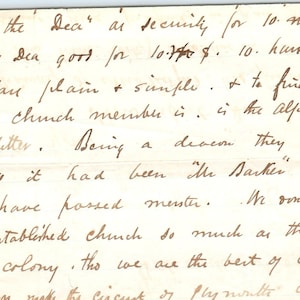 the "Dea" as security for 10.
Dea good for 10. $. 10.
plain & simple. & to
church member is. is the
Being a deacon they
it had been "Mr Barker"
have passed muster. We
established church so much as
colony. tho we are the best of
make the circuit of Plymouth"